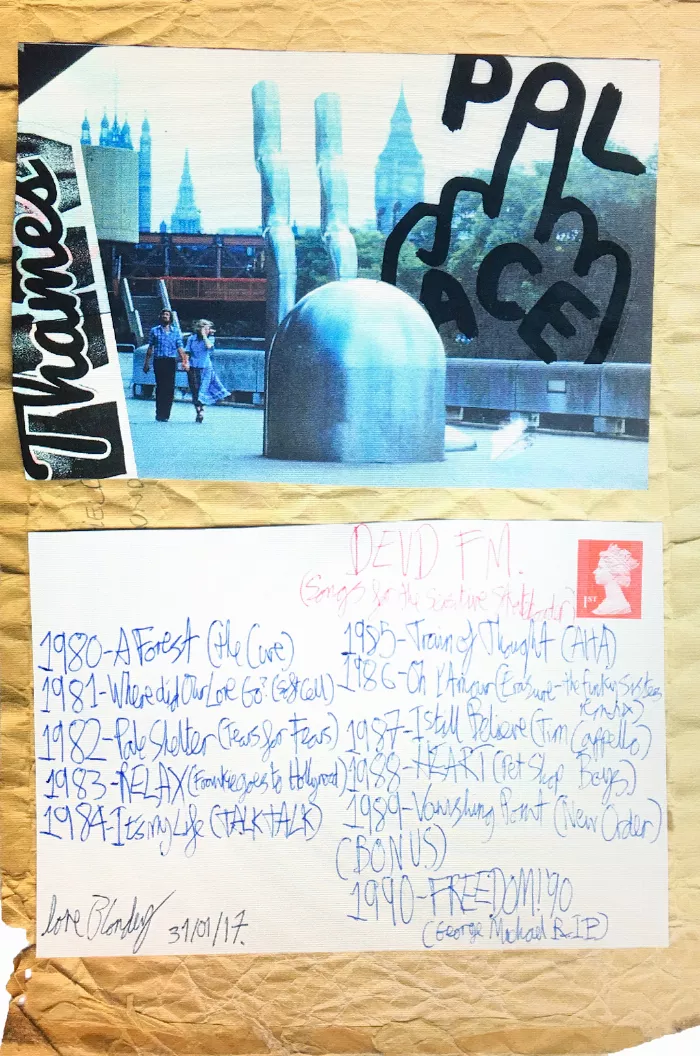 PAL
ACE
Thames
DEVD FM.
(Songs for the Sensitive Skateboarder)
1ST
1980-A Forest (the Cure)
1981-Where did Our Love Go? (Soft Cell)
1982-Pale Shelter (Tears for Fears)
1983-RELAX (Frankie goes to Hollywood)
1984-Its my Life (TALK TALK)
1985-Train of Thought (AHA)
1986-Oh L'Amour (Erasure-the funky sisters
remix)
1987-I still Believe (Tim Cappello)
1988-HEART (Pet Shop Boys)
1989-Vanishing Point (New Order)
(BONUS)
1990-FREEDOM!'90
(George Michael R.I.P)
love Blondey 31/01/17.